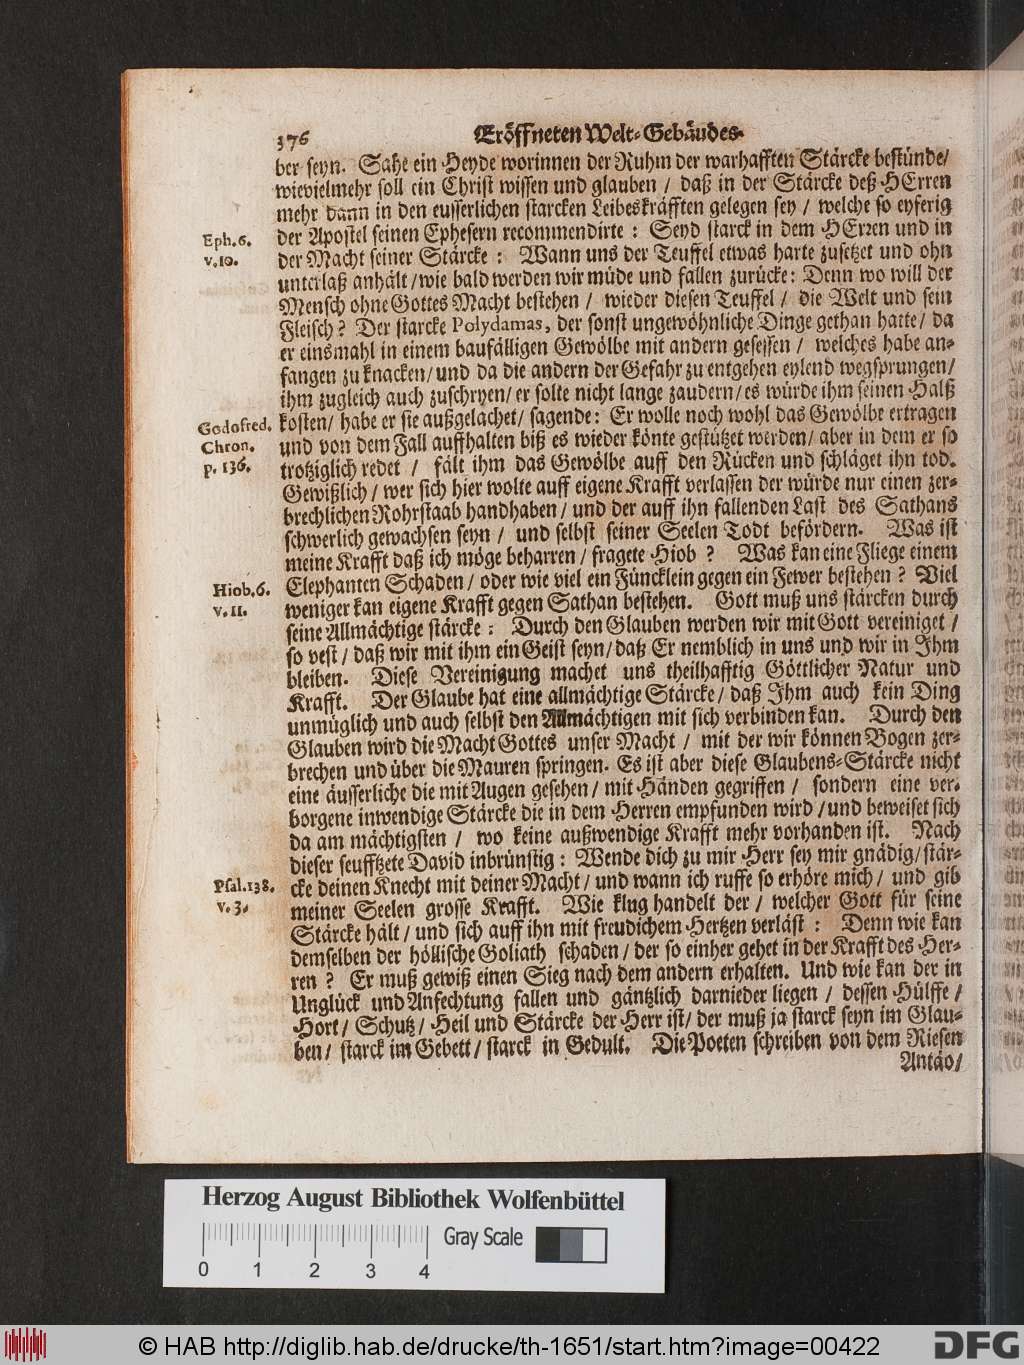 376 Eröffneten Welt-Gebäudes
ber seyn. Sahe ein Heyde worinnen der Ruhm der warhafften Stärcke bestünde/
wievielmehr soll ein Christ wissen und glauben / daß in der Stärcke deß HErren
mehr dann in den eusserlichen starcken Leibeskräfften gelegen sey / welche so eyferig
Eph. 6. der Apostel seinen Ephesern recommendirte : Seyd starck in dem HErren und in
v. 10. der Macht seiner Stärcke : Wann uns der Teuffel etwas harte zusetzet und ohn
unterlaß anhält / wie bald werden wir müde und fallen zurücke: Denn wo will der
Mensch ohne Gottes Macht bestehen / wieder diesen Teuffel / die Welt und sein
Fleisch? Der starcke Polydamas, der sonst ungewöhnliche Dinge gethan hatte / da
er einsmahl in einem baufälligen Gewölbe mit andern gesessen / welches habe an-
fangen zu knacken/ und da die andern der Gefahr zu entgehen eylend wegsprungen/
ihm zugleich auch zuschryen/ er solte nicht lange zaudern/ es würde ihm seinen Halß
Godofred. kosten/ habe er sie außgelachet/ sagende: Er wolle noch wohl das Gewölbe ertragen
Chron. und von dem Fall auffhalten biß es wieder könte gestützet werden/ aber in dem er so
p. 136. trotziglich redet / fält ihm das Gewölbe auff den Rücken und schläget ihn tod.
Gewißlich / wer sich hier wolte auff eigene Krafft verlassen der würde nur einen zer-
brechlichen Rohrstaab handhaben/ und der auff ihn fallenden Last des Sathans
schwerlich gewachsen seyn / und selbst seiner Seelen Todt befördern. Was ist
meine Krafft daß ich möge beharren / fragete Hiob ? Was kan eine Fliege einem
Hiob. 6. Elephanten Schaden / oder wie viel ein Füncklein gegen ein Fewer bestehen ? Viel
v. 11. weniger kan eigene Krafft gegen Sathan bestehen. Gott muß uns stärcken durch
seine Allmächtige stärcke : Durch den Glauben werden wir mit Gott vereiniget /
so vest / daß wir mit ihm ein Geist seyn/ daß Er nemblich in uns und wir in Ihm
bleiben. Diese Vereinigung machet uns theilhafftig Göttlicher Natur und
Krafft. Der Glaube hat eine allmächtige Stärcke / daß Ihm auch kein Ding
unmüglich und auch selbst den Allmächtigen mit sich verbinden kan. Durch den
Glauben wird die Macht Gottes unser Macht / mit der wir können Bogen zer-
brechen und über die Mauren springen. Es ist aber diese Glaubens-Stärcke nicht
eine äusserliche die mit Augen gesehen / mit Händen gegriffen / sondern eine ver-
borgene inwendige Stärcke die in dem Herren empfunden wird / und beweiset sich
da am mächtigsten / wo keine außwendige Krafft mehr vorhanden ist. Nach
dieser seufftzete David inbrünstig : Wende dich zu mir Herr sey mir gnädig / stär-
Psal. 138. cke deinen Knecht mit deiner Macht / und wann ich ruffe so erhöre mich / und gib
v. 3. meiner Seelen grosse Krafft. Wie klug handelt der / welcher Gott für seine
Stärcke hält / und sich auff ihn mit freudichem Hertzen verläst : Denn wie kan
demselben der höllische Goliath schaden / der so einher gehet in der Krafft des Her-
ren ? Er muß gewiß einen Sieg nach dem andern erhalten. Und wie kan der in
Unglück und Anfechtung fallen und gäntzlich darnieder liegen / dessen Hülffe /
Hort / Schutz / Heil und Stärcke der Herr ist / der muß ja starck seyn im Glau-
ben / starck im Gebett / starck in Gedult. Die Poeten schreiben von dem Riesen
Antäo/
Herzog August Bibliothek Wolfenbüttel
Gray Scale
0 1 2 3 4
© HAB http://diglib.hab.de/drucke/th-1651/start.htm?image=00422
DFG